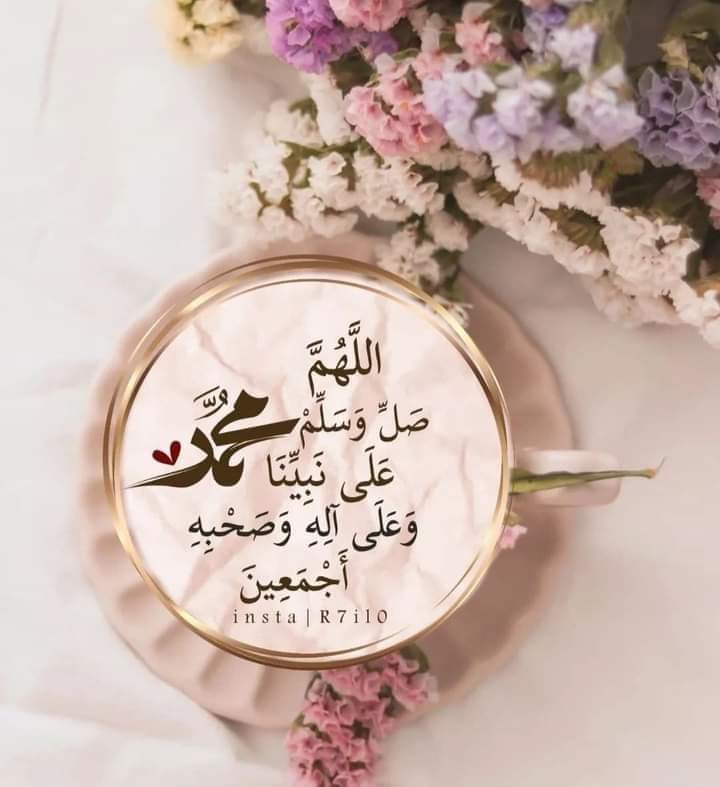 اللَّهُمَّ
صَلِّ وَسَلِّمْ
عَلَى نَبِيِّنَا مُحَمَّد
وَعَلَى آلِهِ وَصَحْبِهِ
أَجْمَعِينَ
insta | R7il0